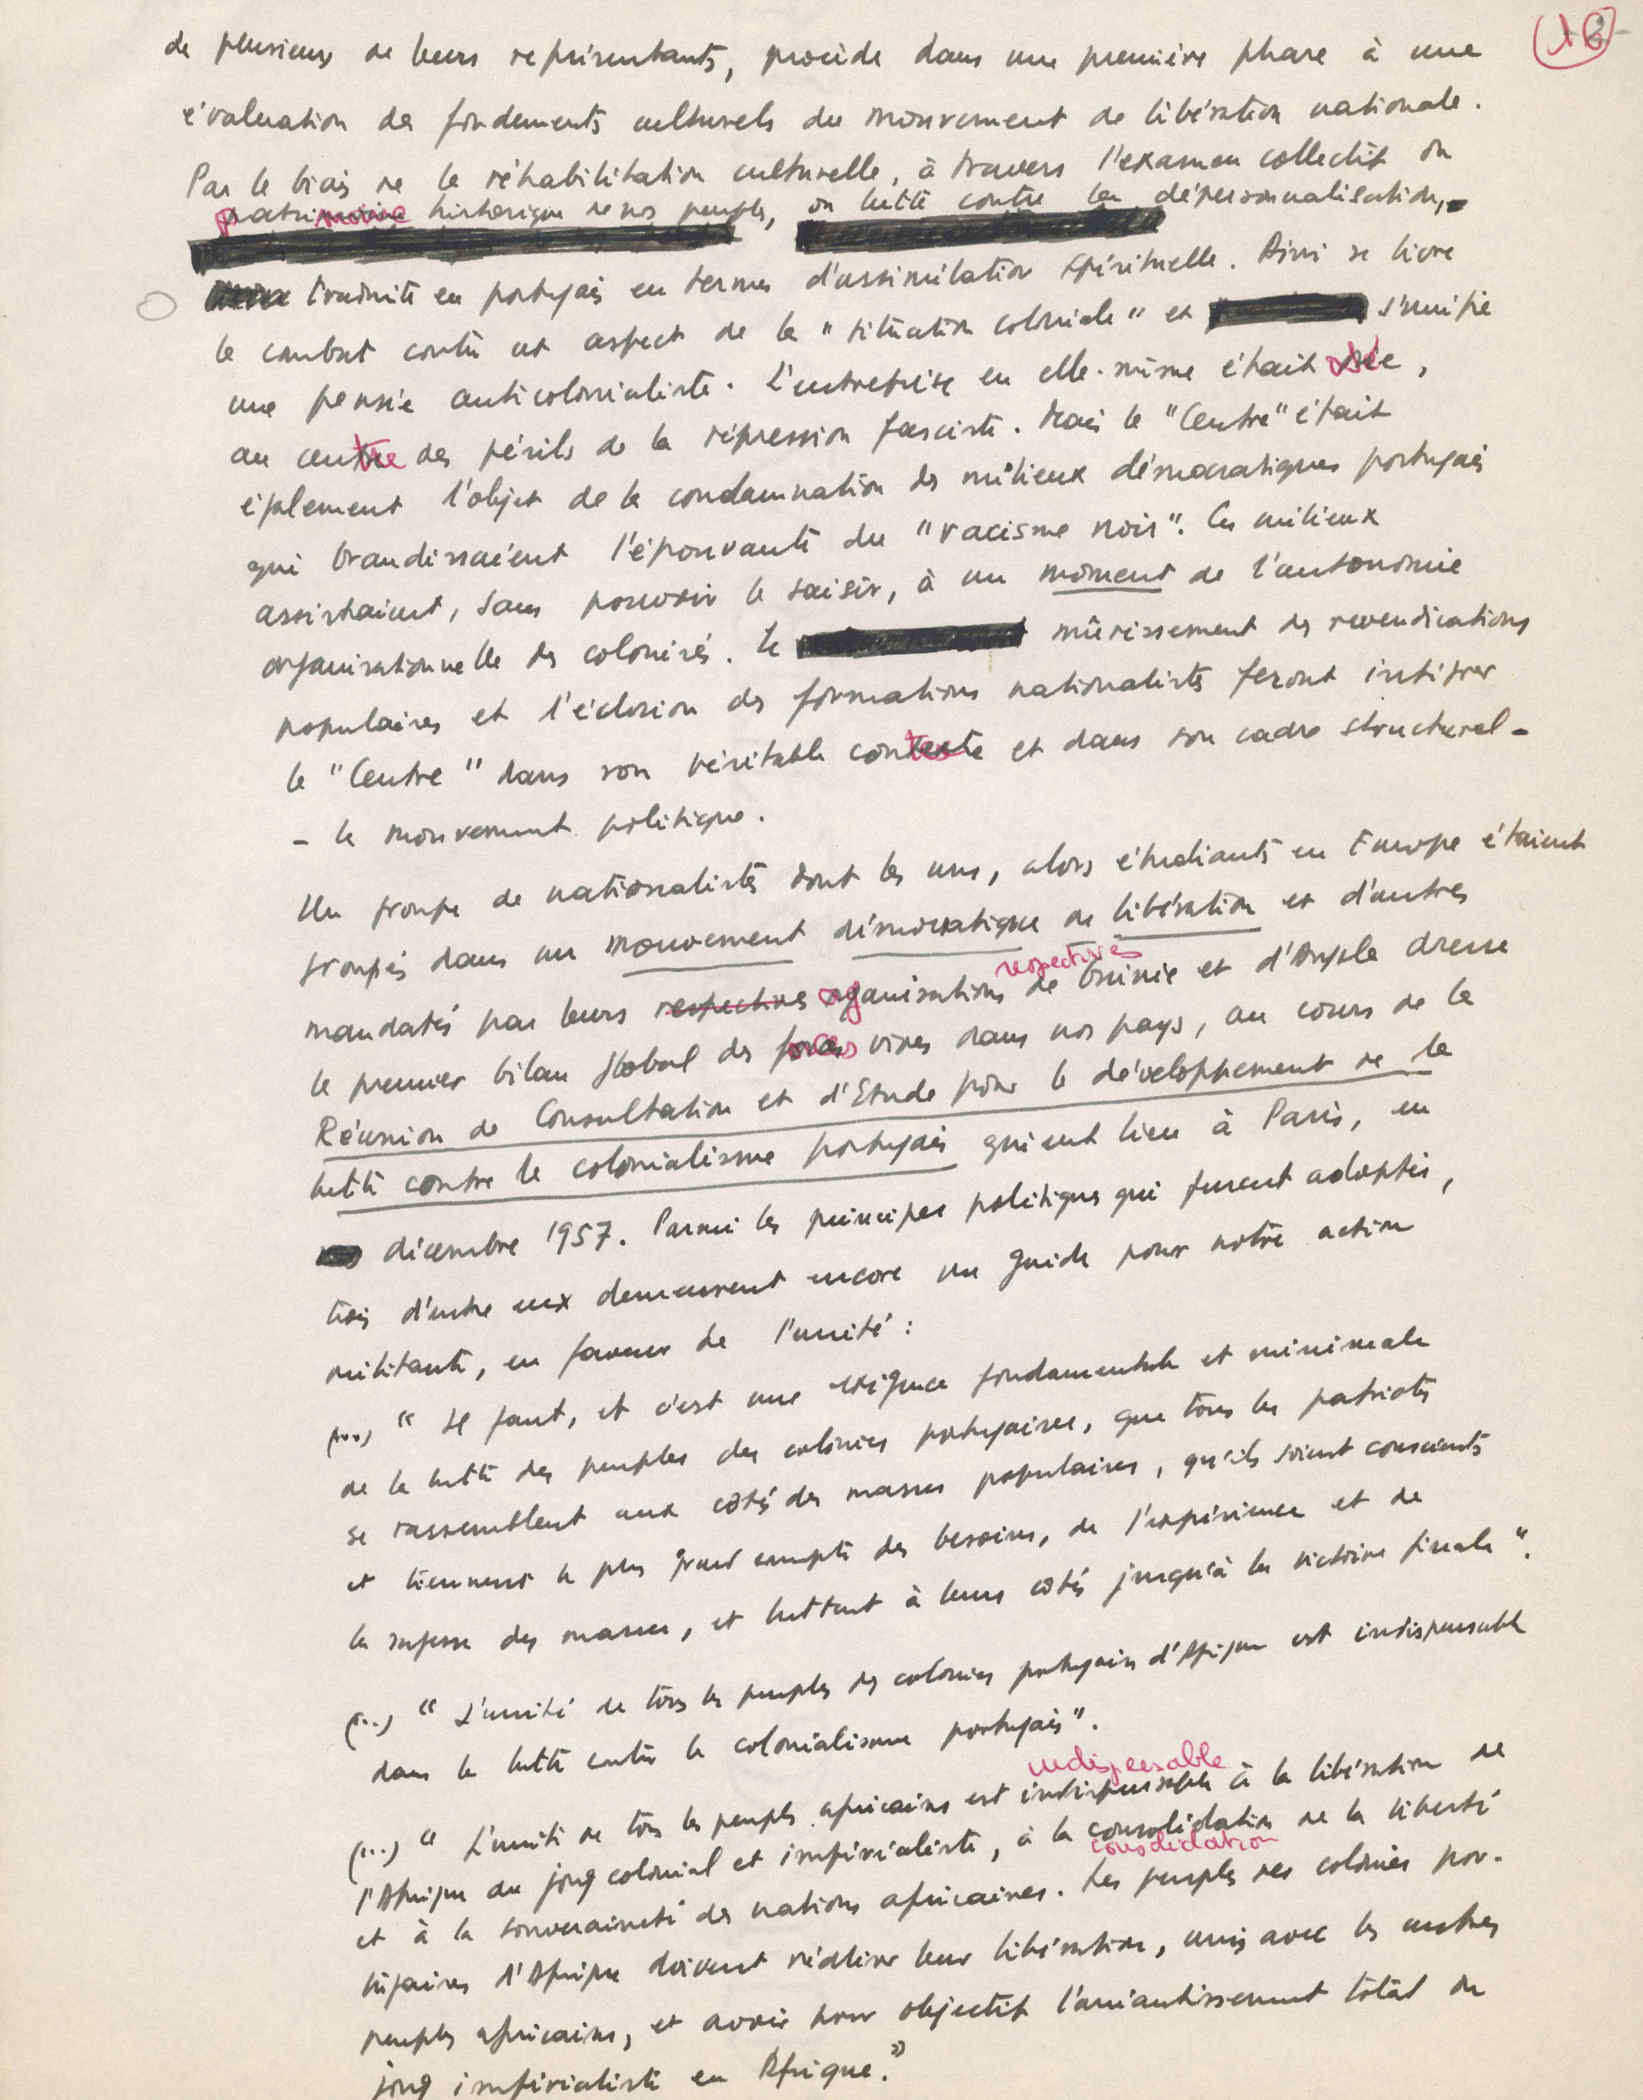 de plusieurs de leurs représentants, procède dans une première phase à une
évaluation des fondements culturels du mouvement de libération nationale.
Par le biais de la réhabilitation culturelle, à travers l'examen collectif du
patrimoine historique de nos peuples, on lutte contre la dépersonnalisation,
traduite en portugais en termes d'assimilation spirituelle. Ainsi se livre
le combat contre cet aspect de la "situation coloniale" et s'unifie
une pensée anticolonialiste. L'entreprise en elle-même était
au centre des périls de la répression fasciste. Mais le "Centre" était
également l'objet de la condamnation des milieux démocratiques portugais
qui brandissaient l'épouvante du "racisme noir". Ces milieux
assistaient, sans pouvoir le saisir, à un moment de l'autonomie
organisationnelle des colonisés. Le mûrissement des revendications
populaires et l'éclosion des formations nationalistes feront intégrer
le "Centre" dans son véritable contexte et dans son cadre structurel -
- le mouvement politique.
Un groupe de nationalistes dont les uns, alors étudiants en Europe étaient
groupés dans un mouvement démocratique de libération et d'autres
respectives
mandatés par leurs organisations de Guinée et d'Angola dresse
le premier bilan global des forces vives dans nos pays, au cours de la
Réunion de Consultation et d'Etude pour le développement de la
lutte contre le colonialisme portugais qui eut lieu à Paris, en
décembre 1957. Parmi les principes politiques qui furent adoptés,
trois d'entre eux demeurent encore un guide pour notre action
militante, en faveur de l'unité :
(...) "Il faut, et c'est une exigence fondamentale et minimale
de la lutte des peuples des colonies portugaises, que tous les patriotes
se rassemblent aux côtés des masses populaires, qu'ils soient conscients
et tiennent le plus grand compte des besoins, de l'expérience et de
la sagesse des masses, et luttent à leurs côtés jusqu'à la victoire finale".
(...) "L'unité de tous les peuples des colonies portugaises d'Afrique est indispensable
dans la lutte contre le colonialisme portugais".
indispensable
(...) "L'unité de tous les peuples africains est indispensable à la libération de
l'Afrique du joug colonial et impérialiste, à la consolidation de la liberté
consolidation
et à la souveraineté des nations africaines. Les peuples des colonies por-
tugaises d'Afrique doivent réaliser leur libération, unis avec les autres
peuples africains, et avoir pour objectif l'anéantissement total du
joug impérialiste en Afrique."